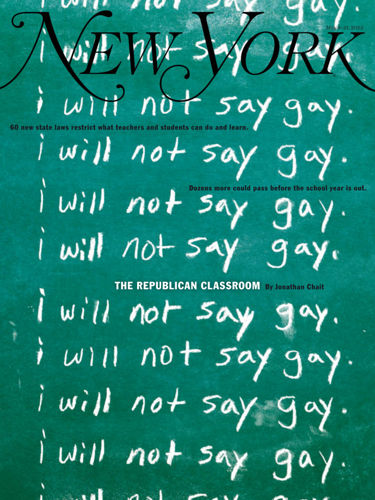 i will not say gay.
NEW YORK
i will not say gay.
i will not say gay.
60 new state laws restrict what teachers and students can do and learn.
i will not say gay.
Dozens more could pass before the school year is out.
i will not say gay.
i will not say gay.
THE REPUBLICAN CLASSROOM By Jonathan Chait
i will not say gay.
i will not say gay.
i will not say gay.
i will not say gay.
i will not say gay.